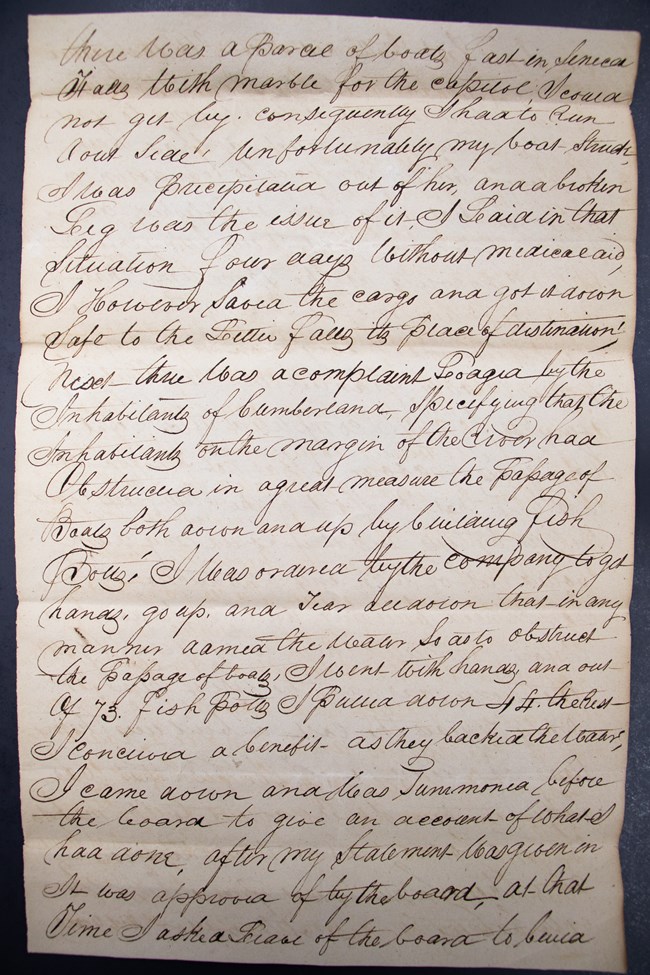 there was a Parcel of boats fast in Seneca
Falls With marble for the capitol, I could
not get by. consequently I had to Run
out Side, unfortunately my boat Struck,
I was Precipitated out of her, and a broken
Leg was the issue of it, I Laid in that
Situation four days Without medical aid,
I However Saved the cargo and got it down
Safe to the Little falls its Place of distination!
Next there was a complaint Loaged by the
Inhabitants of Cumberland, Specifying that the
Inhabitants on the margin of the River had
Obstructed in a great measure the Passage of
Boats both down and up by building fish
Potts, I Was ordered by the company to get
hands, go up, and Tear all down that in any
manner damed the Water So as to obstruct
the Passage of boats, I Went With hands, and out
Of 73. fish Potts I Pulled down 44. the Rest
I concieved a benefit as they backed the Water,
I came down and Was Summoned before
the board to give an account of What I
had done, after my Statement Was given in
It was approved of by the board, at that
Time I asked Leave of the board to build